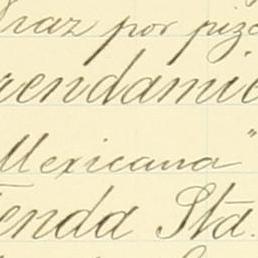 raz por piz
rendamie
Mexicana"
ienda Sta.